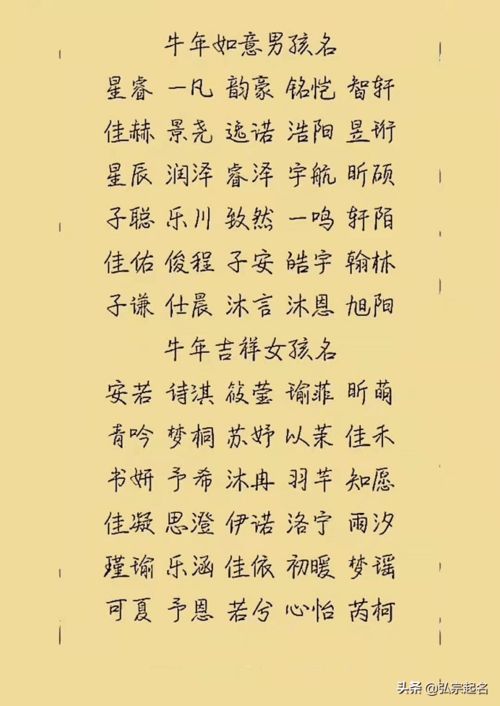 牛年如意男孩名
星睿 一凡 韵豪 铭恺 智轩
佳赫 景尧 逸诺 浩阳 昱珩
星辰 润泽 睿泽 宇航 昕硕
子聪 乐川 致然 一鸣 轩陌
佳佑 俊程 子安 皓宇 翰林
子谦 仕晨 沐言 沐恩 旭阳
牛年吉祥女孩名
安若 诗淇 筱莹 瑜菲 昕萌
青吟 梦桐 苏妤 以茉 佳禾
书妍 予希 沐冉 羽芊 知愿
佳凝 思澄 伊诺 洛宁 雨汐
瑾瑜 乐涵 佳依 初暖 梦谣
可夏 予恩 若兮 心怡 芮柯
头条 @弘宗起名